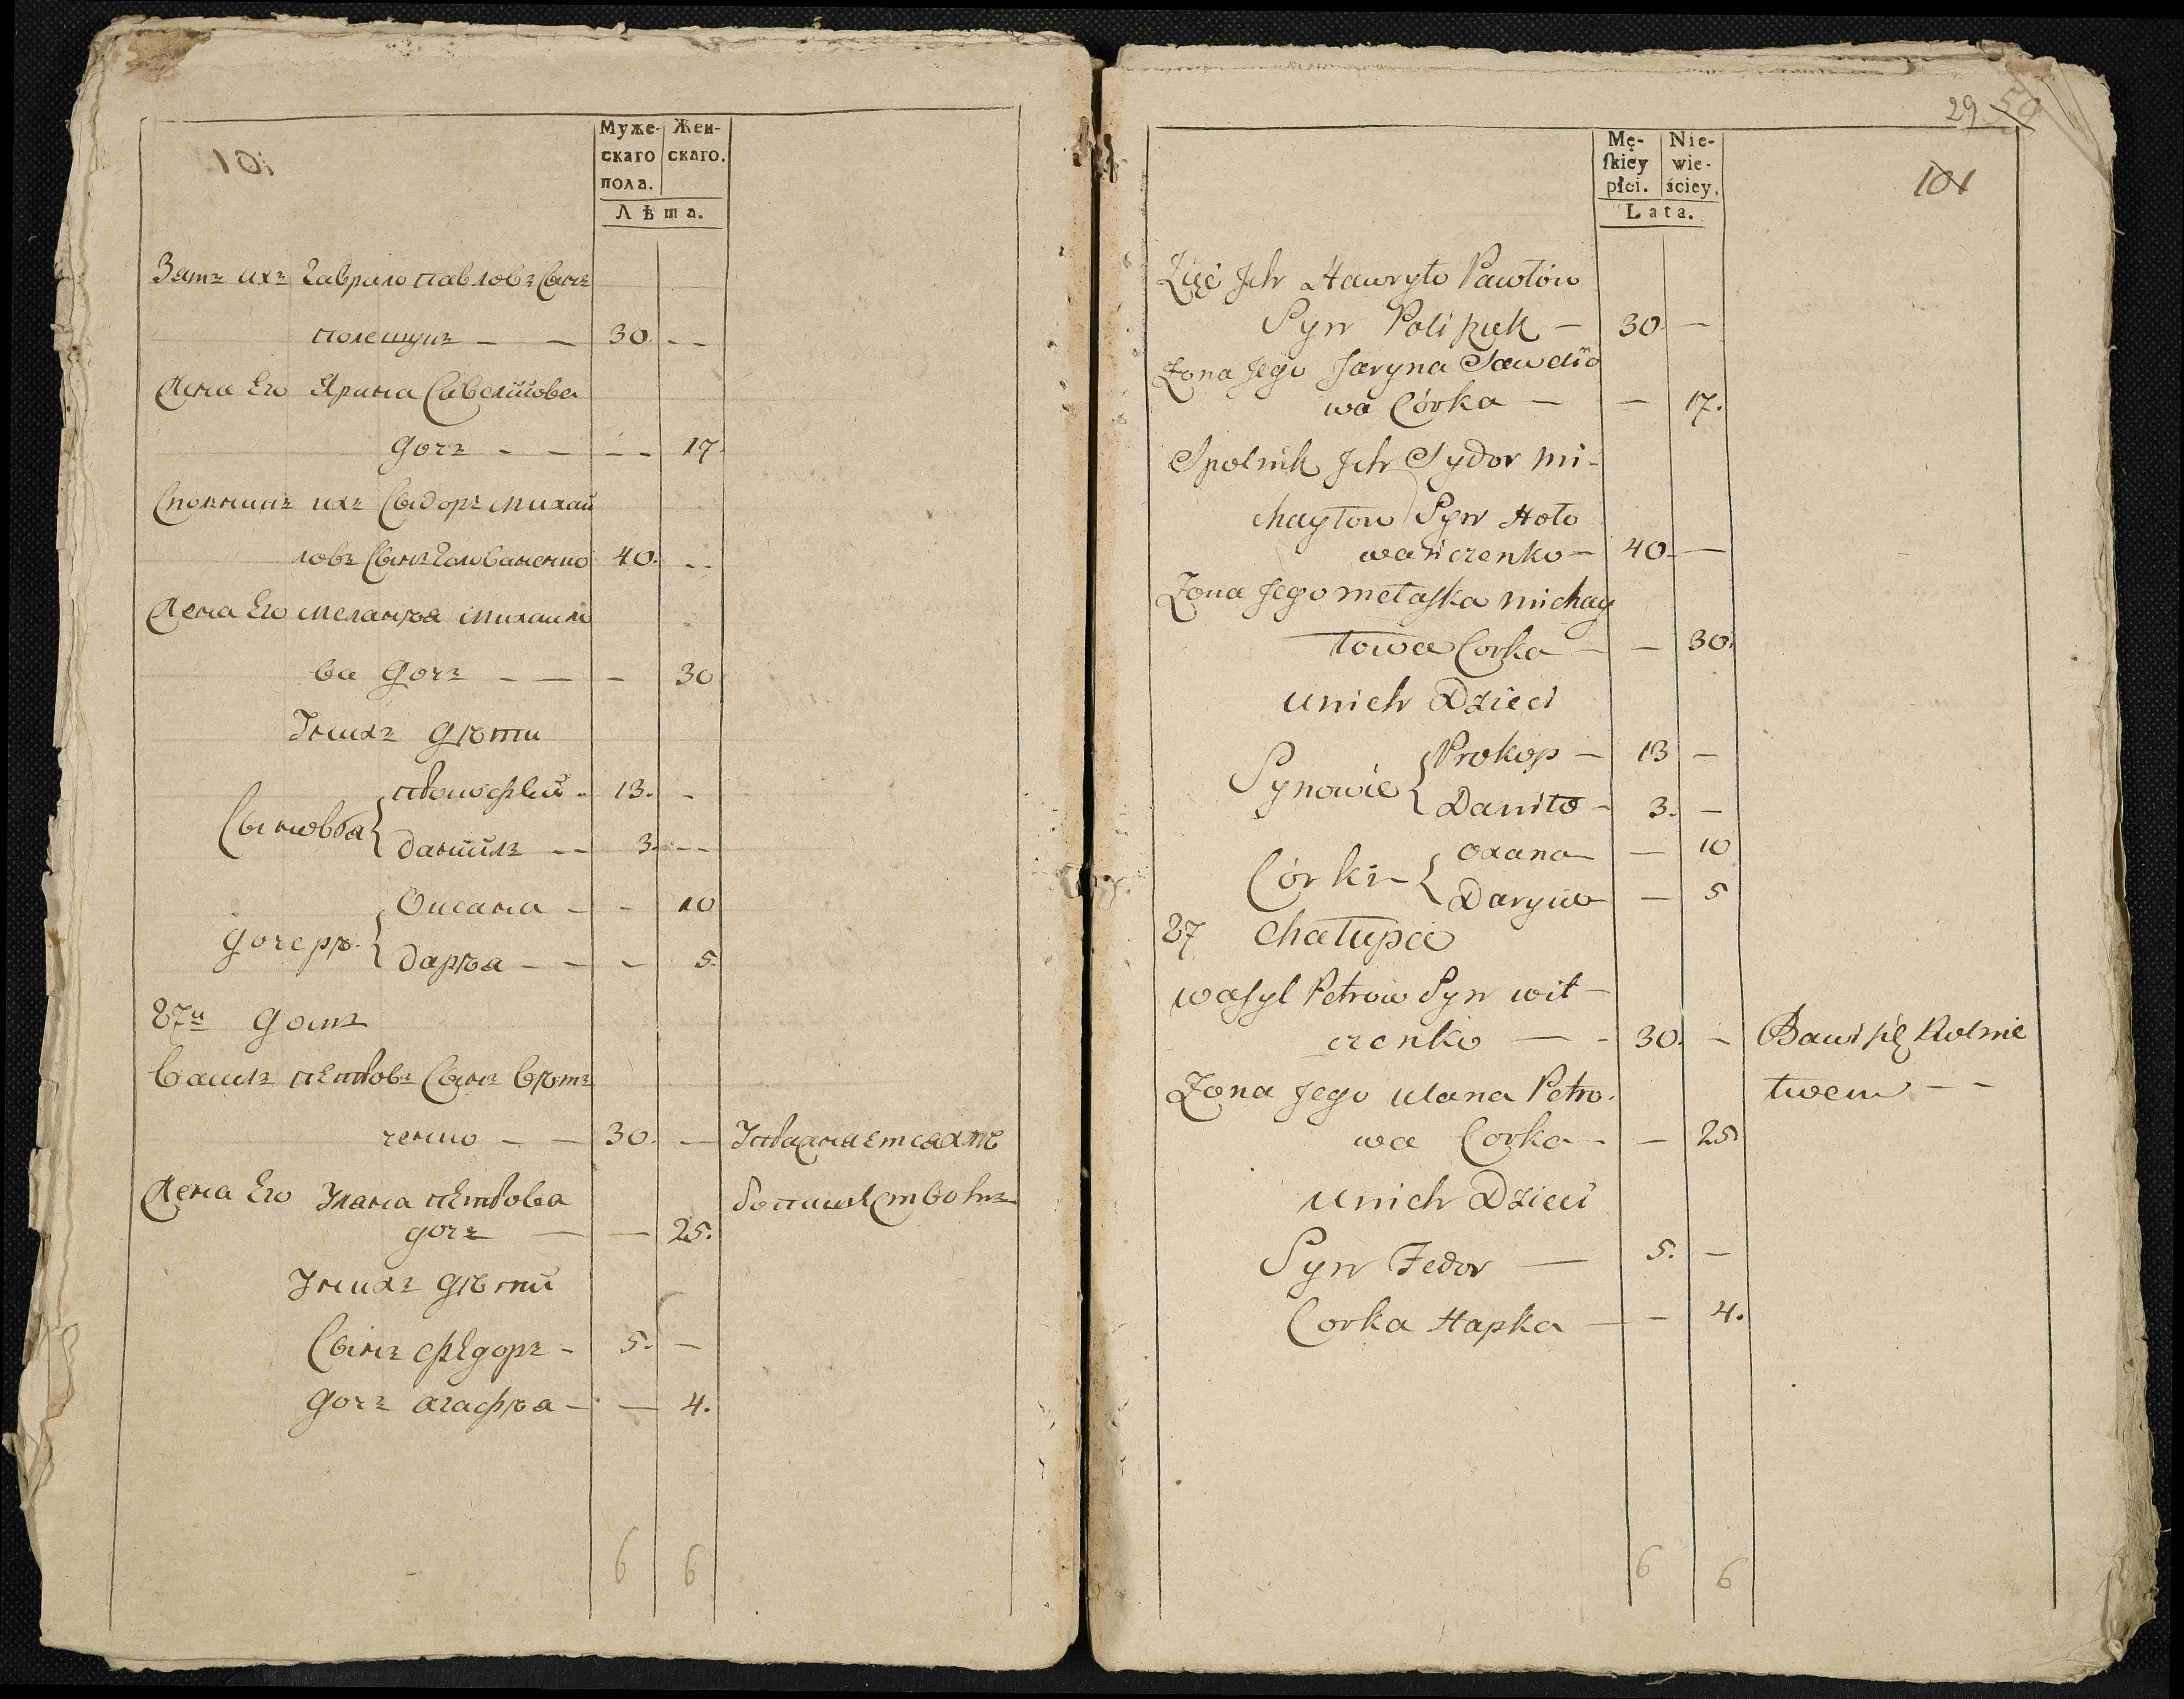 101
Муже-
скаго
пола.
Жен-
скаго.
Лѣта.
Зять ихъ Гаврило Павловъ Сынъ
Полещукъ — — 30. - -
Жена Его Ярина Савелиіова
дочъ - — — - - 17.
Спольникъ ихъ Сыдоръ Михай
ловъ Сынъ Голованенко 40. - -
Жена Его Меланѣя Михайло
ва дочъ - — - 30
У нихъ дѣти
Сыновья { Прокофей - 13. -
Даниилъ - - 3. - -
дочерѣ { Оксана - - 10
Дарѣя - - - 5.
87й домъ
Василь Петровъ Сынъ Вѣт
ченко - — 30. —
Жена Его Улана Петрова
дочъ — — 25.
У нихъ дѣти
Сынъ Федоръ - 5. —
дочъ Агафѣя - — 4.
6 6
29 50
101
Mę-
skiey
płci.
Nie-
wie-
ściey.
Lata.
Zięć Jch Hawryło Pawłów
Syn Poliszuk — 30. —
Żona Jego Jaryna Sawelio
wa Córka — — 17.
Spolnik Jch Sydor Mi-
chayłow Syn Hoło
wańczenko — 40 —
Żona Jego Melaszka Michay
łowa Corka — — 30.
u nich Dzieci
Synowie { Prokop — 13 —
Daniło - 3. —
Córki - { Oxana — 10
Daryia — 5
87 Chałupa
Wasyl Petrow Syn Wit-
czenko — - 30. - Bawi się Rolnic
Żona Jego Ulana Petro- twem — —
wa Corka - — 25
u nich Dzieci
Syn Fedor — 5. —
Corka Hapka — — 4.
6 6